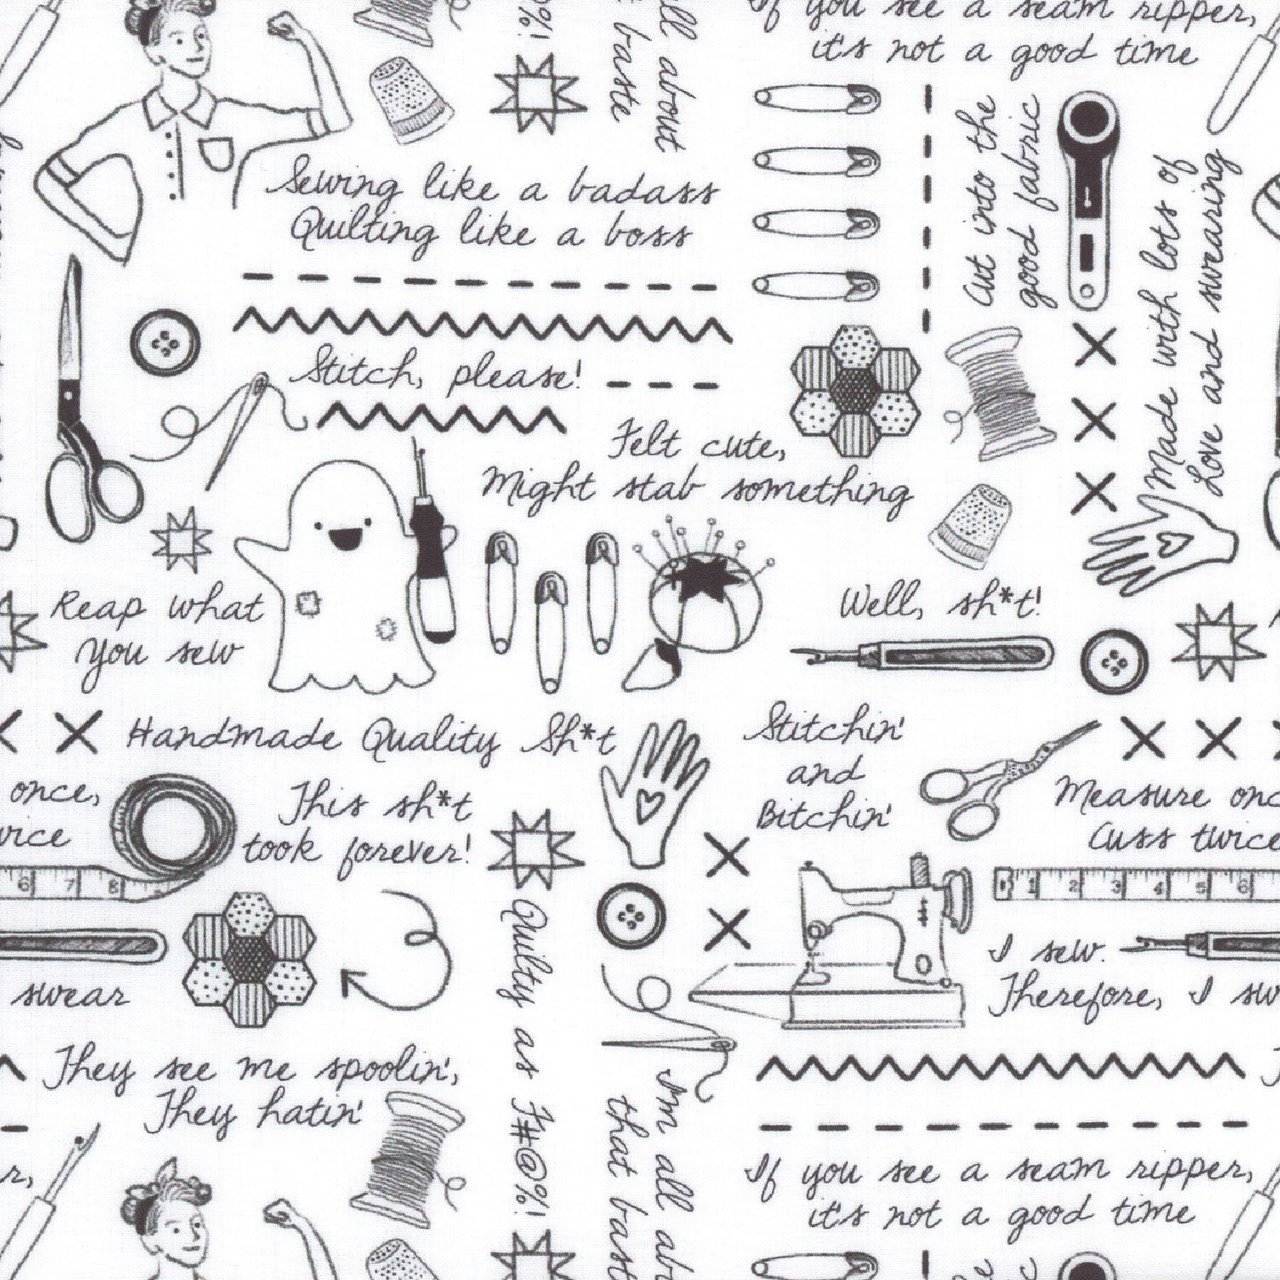 %!
all about
baste
If you see a seam ripper,
it's not a good time
Sewing like a badass
Quilting like a boss
Cut into the
good fabric
Made with lots of
Love and swearing
Stitch, please!
Felt cute,
Might stab something
Reap what
You sew
Well, sh*t!
Handmade Quality Sh*t
Stitchin'
and
Bitchin'
once,
This sh*t
took forever!
Measure onc
Cuss twice
6 7 8
1 2 3 4 5 6
Quilty as F#@%!
I sew.
Therefore, I sw
swear
They see me spoolin',
They hatin'
I'm all ab
that bast
If you see a seam ripper,
it's not a good time